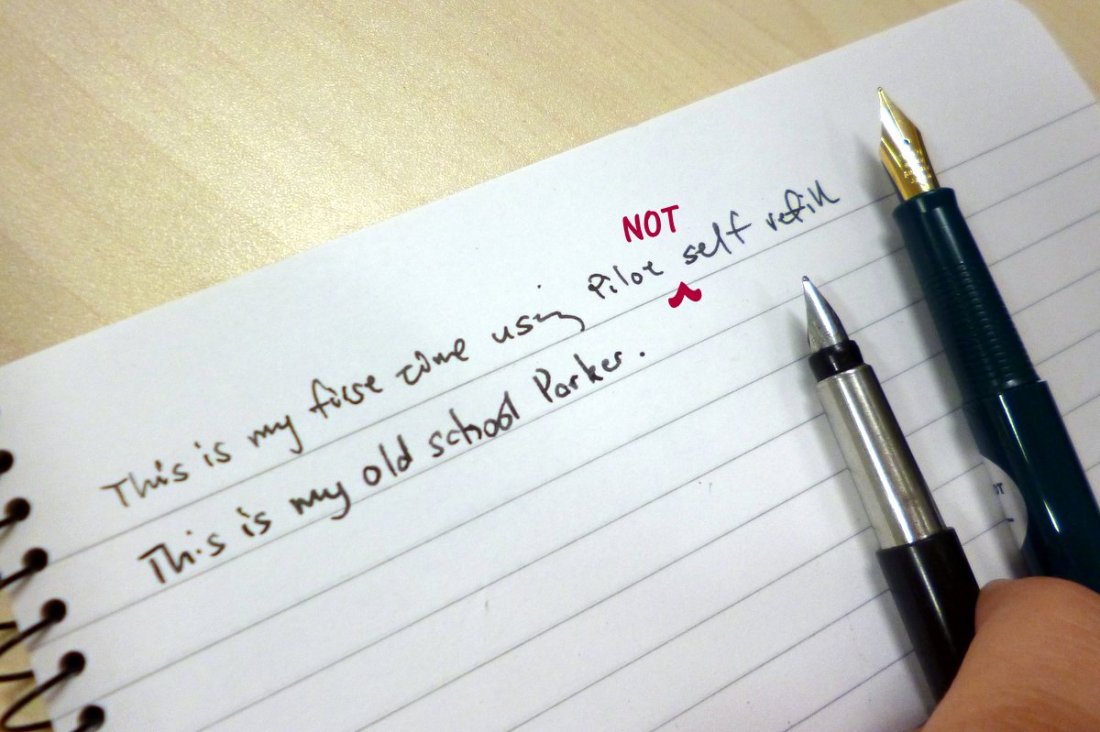 This is my first time using Pilot NOT self refill
This is my old school Parker.